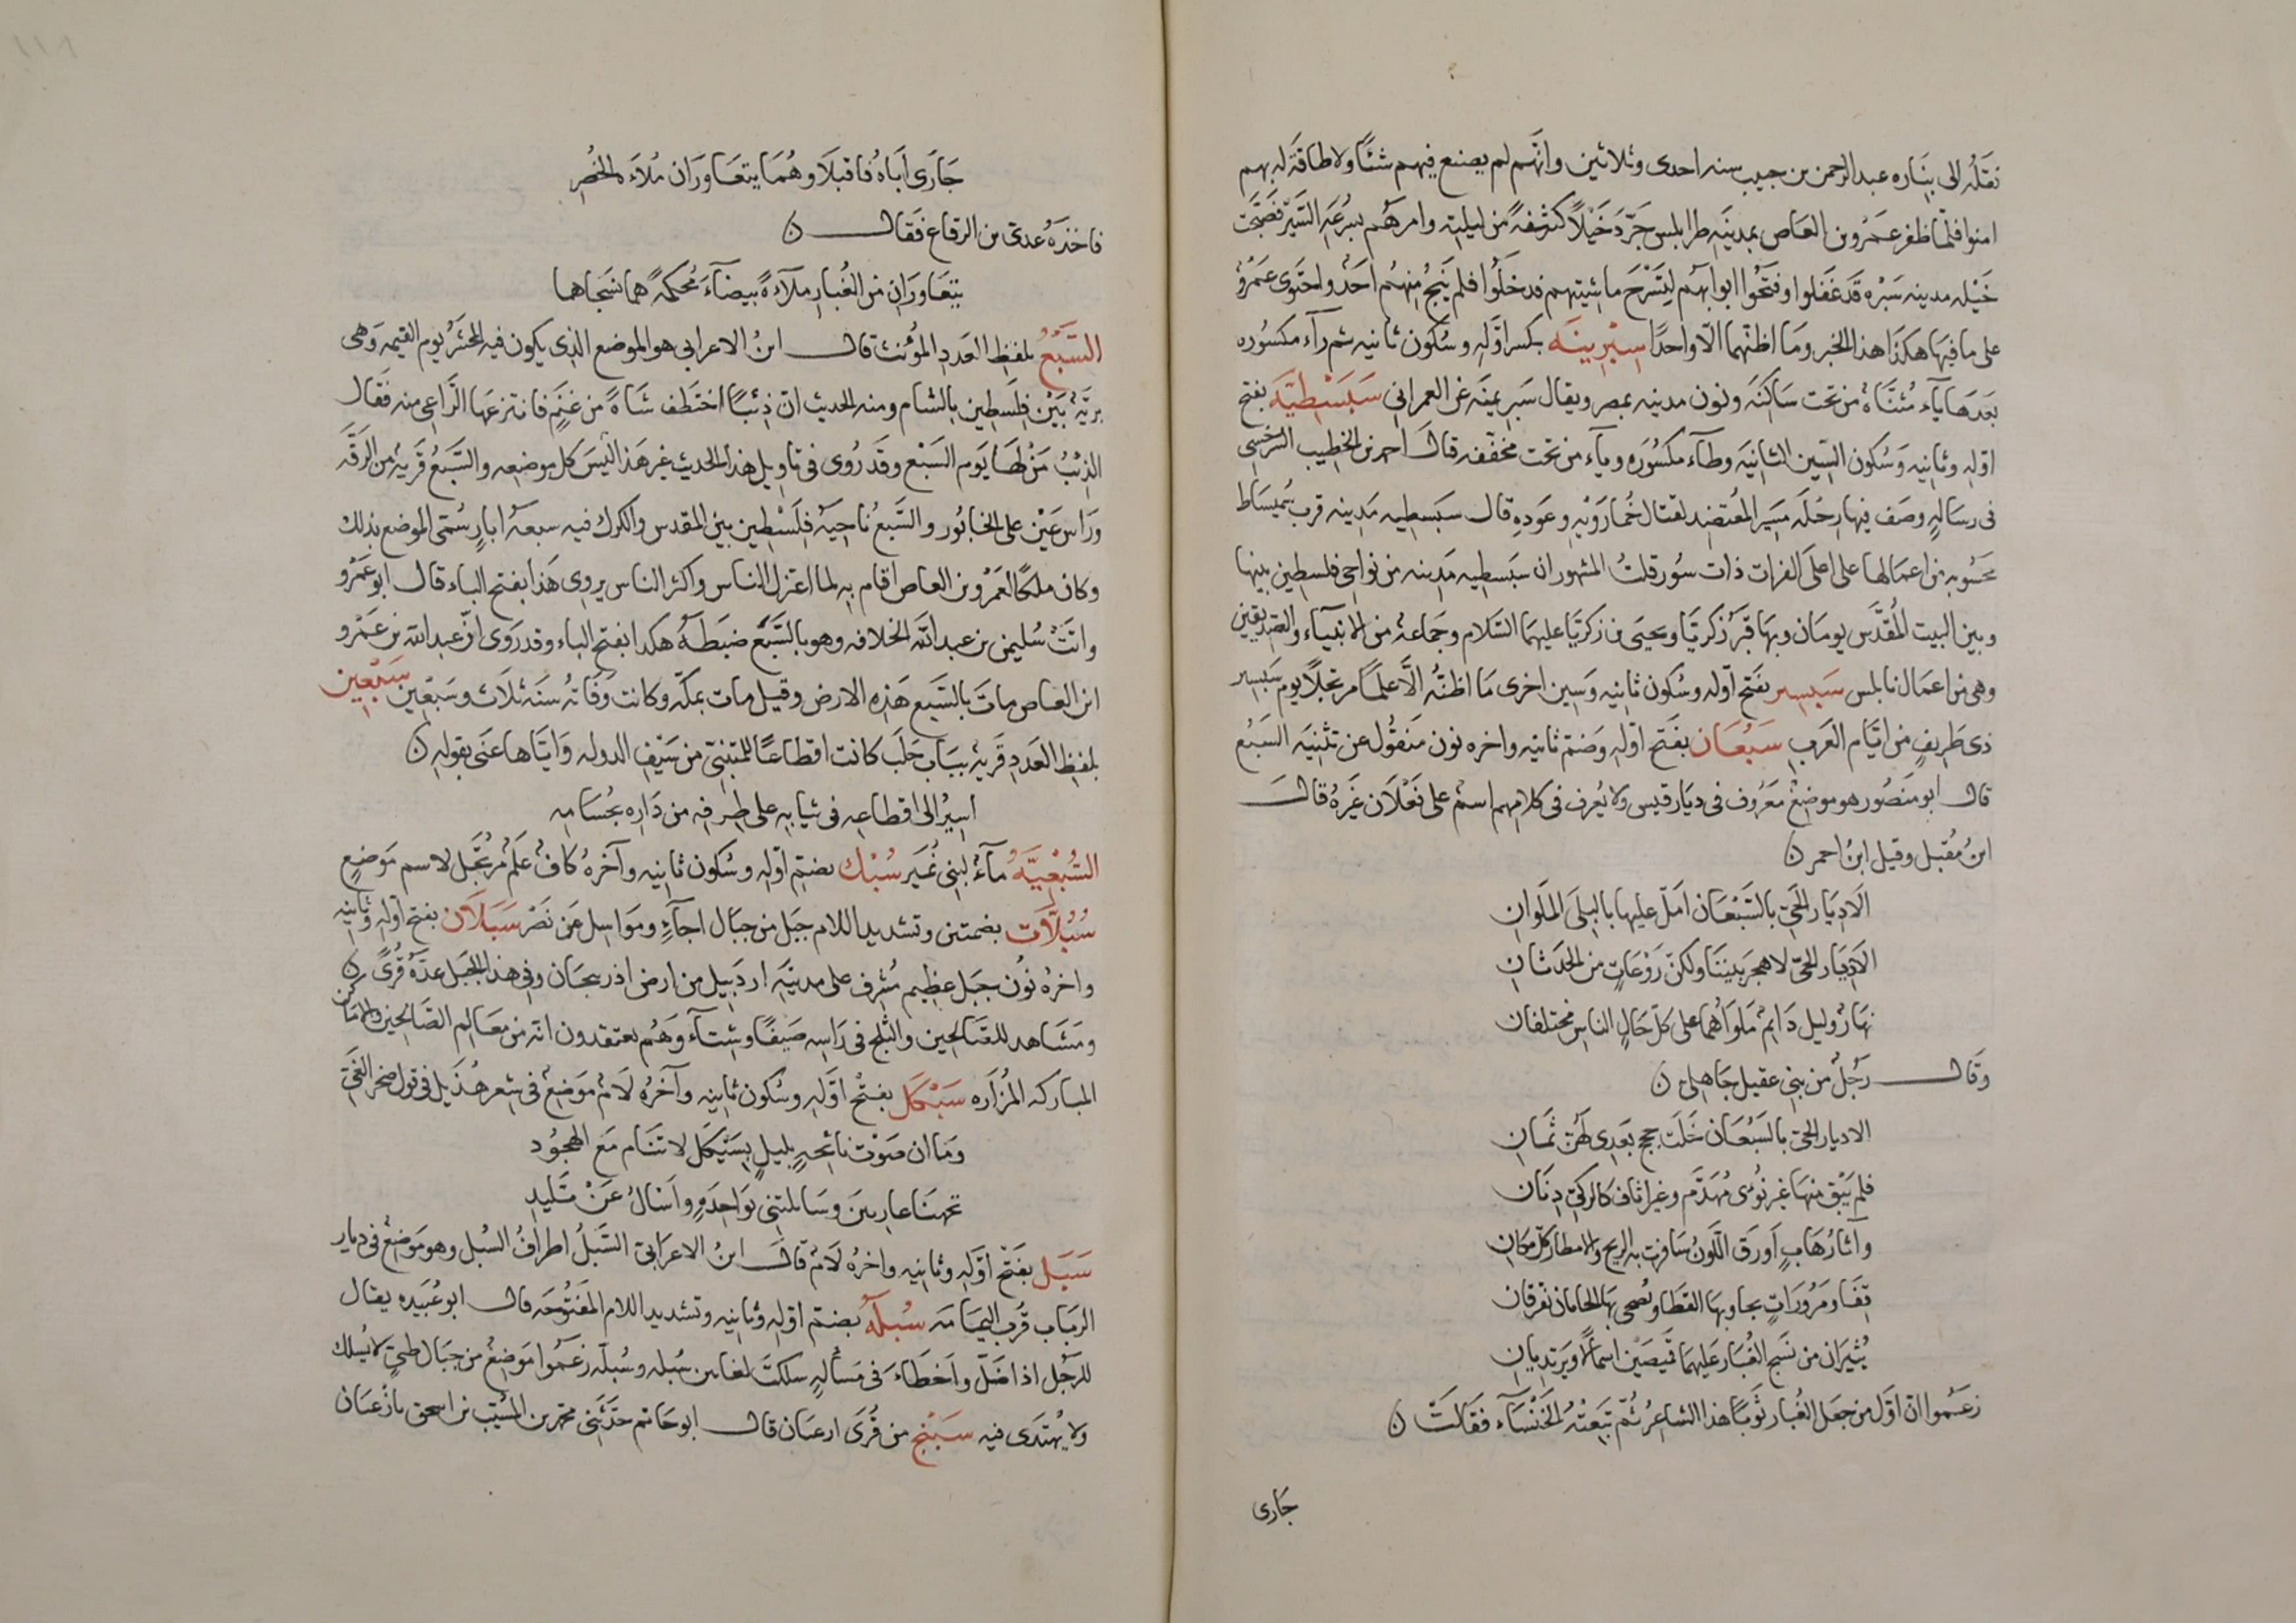 نقله الى بناره عبد الرحمن بن حبيب سنه احدى وثلاثين وانهم لم يصنع فيهم شئا ولا طاقة له بهم
امنوا فلما ظفر عمرو بن العاص بمدينه طرابلس جرد خيلا كثيفة من ليلته وامرهم بسرعه السير فصبحت
خيله مدينه سبره قد غفلوا وفتحوا ابوابهم لتسرح ماشيتهم فدخلوا فلم ينج منهم احد واحتوى عمرو
على ما فيها هكذا هذا الخبر وما اظنهما الا واحدا سبرينه بكسر اوله وسكون ثانيه ثم رآء مكسوره
بعدها يآء مثناة من تحت ساكنه ونون مدينه بمصر ويقال سبريمنه عن العمراني سبسطيه بفتح
اوله وثانيه وسكون السين الثانيه وطآء مكسوره ويآء من تحت مخففه قال احمد بن الخطيب السرخسي
فى رساله وصف فيها رحله مسير المعتضد لقتال خمارويه وعوده قال سبسطيه مدينه قرب سميساط
محسوبه من اعمالها على اعلى الفرات ذات سور قلت المشهور ان سبسطيه مدينه من نواحى فلسطين بينها
وبين البيت المقدس يومان وبها قبر زكريا ويحيى بن زكريا عليهما السلام وجماعة من الانبيآء والصديقين
وهى من اعمال نابلس سبسير بفتح اوله وسكون ثانيه وسين اخرى ما اظنه الا علما مرتجلا يوم سبسير
ذى طريف من ايام العرب سبعان بفتح اوله وضم ثانيه واخره نون منقول عن تثنيه السبع
قال ابو منصور هو موضع معروف فى ديار قيس ولا يعرف فى كلامهم اسم على فعلان غيره قال
ابن مقبل وقيل ابن احمر ن
الا ديار الحى بالسبعان امل عليها بالبلى الملوان
الا ديار الحى لا هجر بيننا ولكن روعات من الحدثان
نهار وليل دايم ملواهما على كل حال الناس مختلفان
وقال رجل من بنى عقيل جاهلى ن
الا ديار الحى بالسبعان خلت حجج بعدى لهن ثمان
فلم يبق منها غير نوى مهدم وغير اثاف كالركى دفان
وآثار هاب اورق اللون سافرت به الريح والامطار كل مكان
قفار مرورات يحار بها القطا ويضحى بها الجابان تفرقان
يثيران من نسج الغبار عليهما قميصين اسمالا ويرتديان
زعموا ان اول من جعل الغبار ثوبا هذا الشاعر ثم تبعته الخنسآء فقالت ن
جارى
جارى اباه فاقبلا وهما يتعاوران ملاءة الحضر
فاخذه عدى بن الرقاع فقال ن
يتعاوران من الغبار ملآءة بيضآء محكمة هما نسجاها
السبع بلفظ العدد المؤنث قال ابن الاعرابى هو الموضع الذى يكون فيه المحشر يوم القيمه وهى
بريه بين فلسطين بالشام ومنه الحديث ان ذئبا اختطف شاة من غنم فانتزعها الراعى منه فقال
الذئب من لها يوم السبع وقد روى فى تاويل هذا الحديث غير هذا ليس كل موضعه والسبع قرية من الرقه
وراس عين على الخابور والسبع ناحية فلسطين بين المقدس والكرك فيه سبعة ابار سمى الموضع بذلك
وكان ملكا لعمرو بن العاص اقام به لما اعتزل الناس واكثر الناس يروى هذا بفتح الباء قال ابو عمرو
واتت سليمن بن عبد الله الخلافه وهو بالسبع ضبطه هكدا بفتح الباء وقد روى ان عبد الله بن عمرو
ابن العاص مات بالسبع هذه الارض وقيل مات بمكه وكانت وفاته سنة ثلاث وسبعين سبعين
بلفظ العدد قرية بباب حلب كانت اقطاعا للمتنبى من سيف الدوله واياها عنى بقوله ن
اسير الى اقطاعه فى ثيابه على طرفه من داره بحسامه
السبعيه مآء لبنى نمير سبك بضم اوله وسكون ثانيه وآخره كاف علم مرتجل لاسم موضع
سبلات بضمتين وتشديد اللام جبل من جبال اجآء ومواسل عن نصر سبلان بفتح اوله وثانيه
واخره نون جبل عظيم مشرف على مدينه اردبيل من ارض اذربيجان وفى هذا الجبل عدة قرى ن
ومشاهد للصالحين والثلج فى راسه صيفا وشتآء وهم يعتقدون انه من معالم الصالحين والاماكن
المباركه المزاره سبكل بفتح اوله وسكون ثانيه وآخره لام موضع فى شعر هذيل فى قول صخر الغى
وما ان صوت نائحه بليل بسبكل لا تنام مع الهجود
تجهنا عاريين وسايلتنى بواحدة واسال عن تليد
سبل بفتح اوله وثانيه واخره لام قال ابن الاعرابى السبل اطراف السبل وهو موضع فى ديار
الرباب قرب اليمامه سبله بضم اوله وثانيه وتشديد اللام المفتوحه قال ابو عبيده يقال
للرجل اذا ضل واخطاء فى مساله سلكت لغاين سبله وسبله زعموا موضع من جبال طى لا يسلك
ولا يهتدى فيه سبنج من قرى ارعيان قال ابو حاتم حدثنى محمد بن المسيب بن اسحق بارغيان